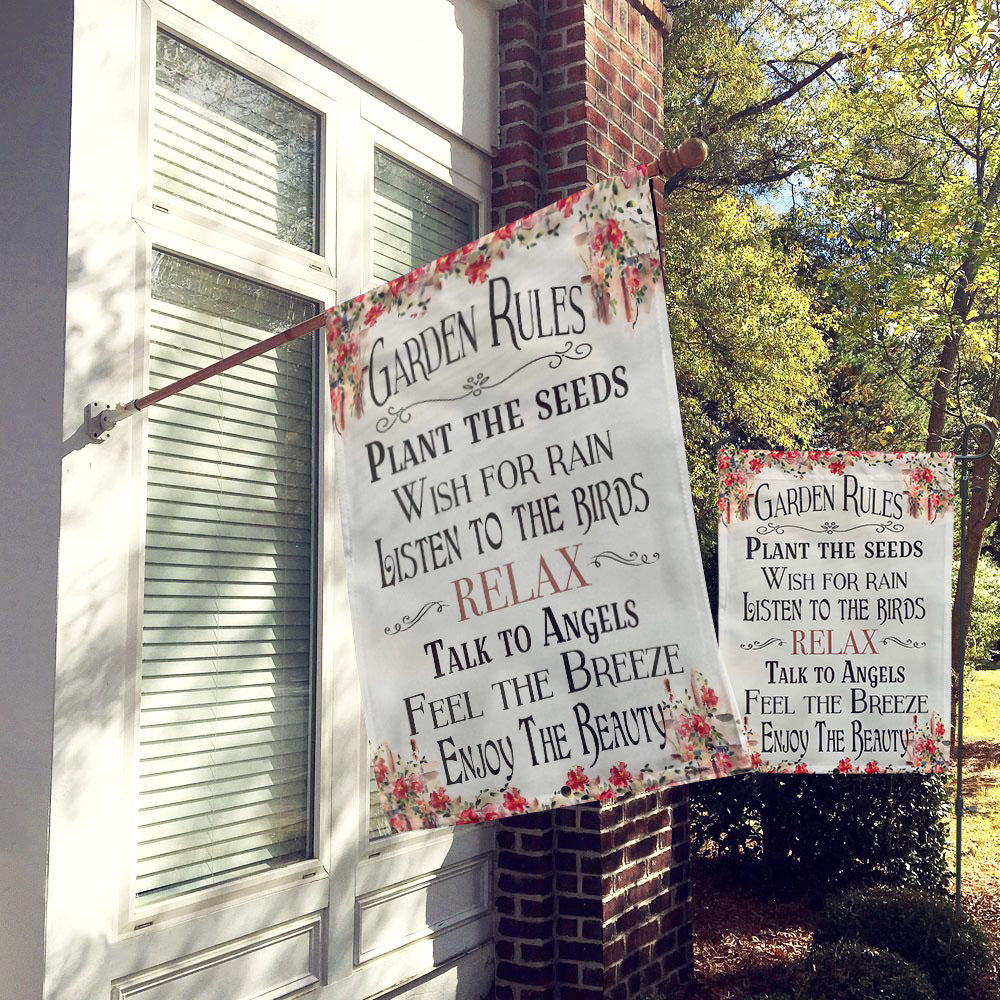 Garden Rules
Plant the seeds
Wish for rain
Listen to the birds
RELAX
Talk to Angels
Feel the Breeze
Enjoy The Beauty
Garden Rules
Plant the seeds
Wish for rain
Listen to the birds
RELAX
Talk to Angels
Feel the Breeze
Enjoy The Beauty